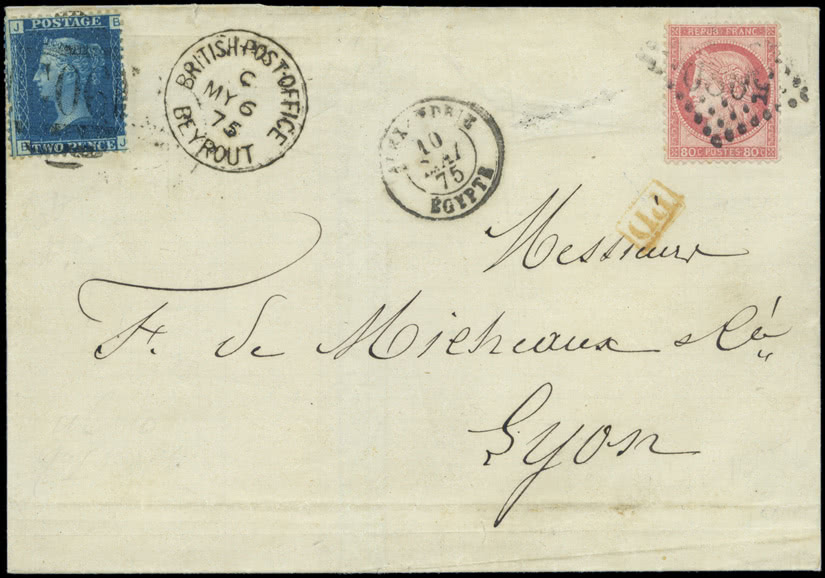 J POSTAGE B
B TWO PENCE J
BRITISH·POST·OFFICE
C
MY 6
75
BEYROUT
10
MAI
75
EGYPTE
REPUB·FRANC·
80C·POSTES·80C
5080
P.D
Messieurs
F. de Micheaux & Cé
Lyon